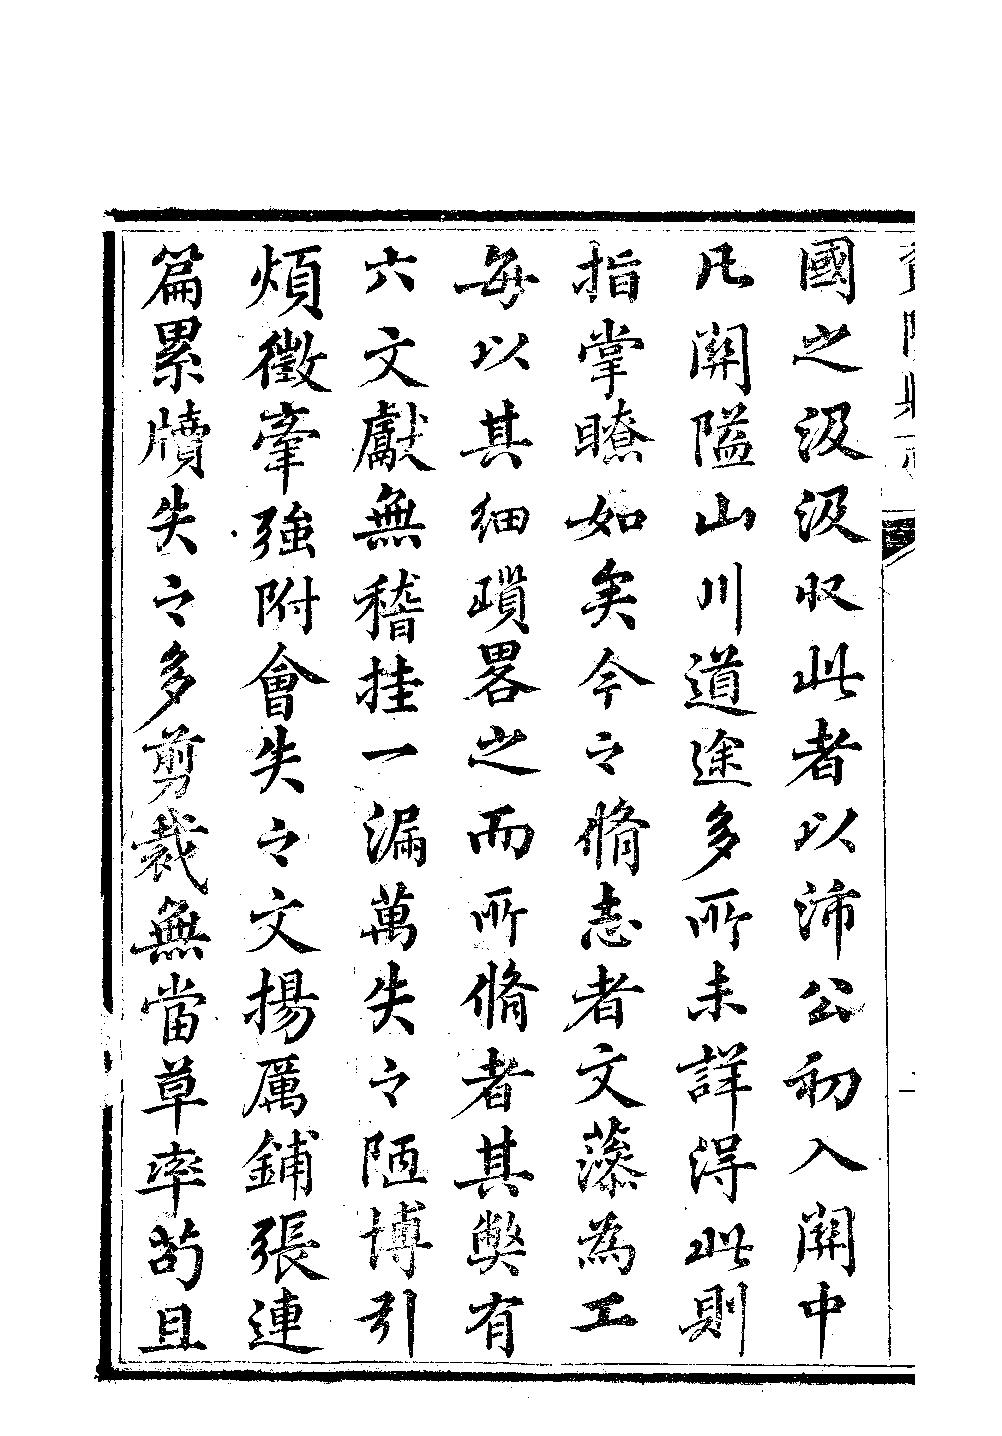 國之汲汲収此者以沛公初入關中
凡關隘山川道途多所未詳得此則
指掌瞭如矣今之脩志者文藻為工
每以其細瑣畧之而所脩者其獘有
六文獻無稽挂一漏萬失之陋博引
煩徵牽強附會失之文揚厲鋪張連
篇累牘失之多剪裁無當草率苟且